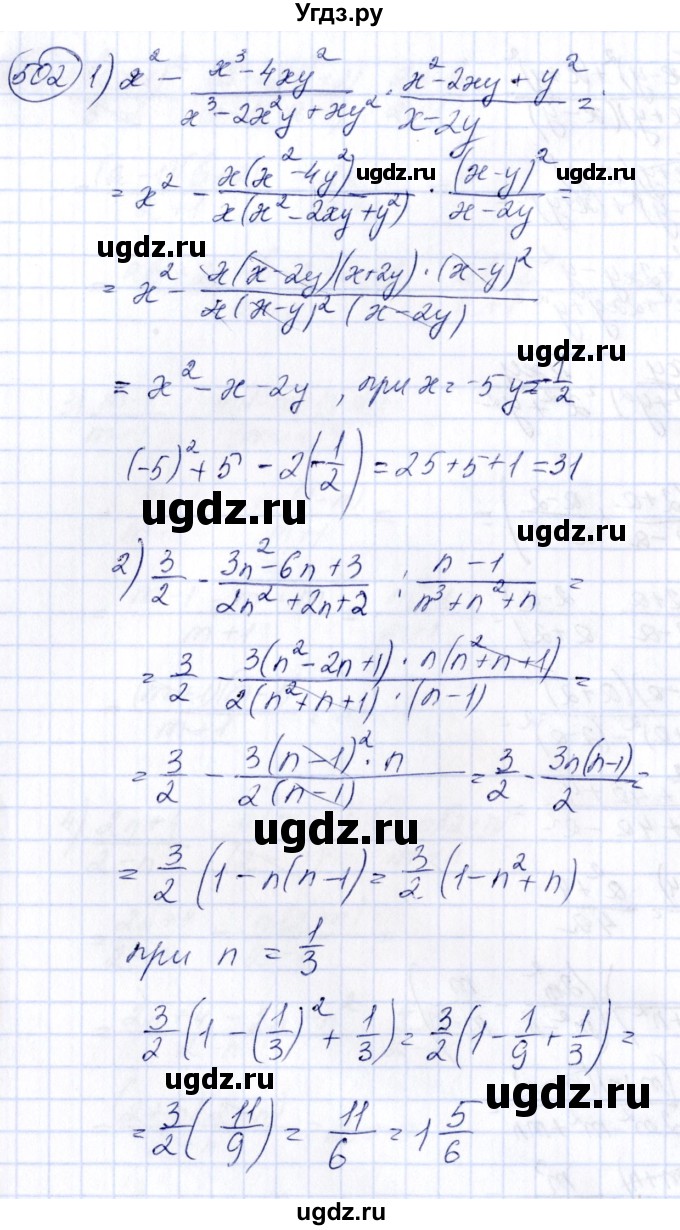 Угдз.ру
502 1) x² - (x³-4xy²)/(x³-2x²y+xy²) · (x²-2xy+y²)/(x-2y) =
= x² - x(x²-4y²)/x(x²-2xy+y²) · (x-y)²/(x-2y) =
ugdz.ru ugdz.ru
ugdz.ru
= x² - x(x-2y)(x+2y)·(x-y)²/x(x-y)²(x-2y)
ugdz.ru
= x² - x - 2y , при x = -5 y = -1/2
(-5)² + 5 - 2(-1/2) = 25+5+1 = 31
ugdz.ru
ugdz.ru
2) 3/2 - (3n²-6n+3)/(2n²+2n+2) : (n-1)/(n³+n²+n) =
= 3/2 - 3(n²-2n+1)·n(n²+n+1)/2(n²+n+1)·(n-1) =
= 3/2 - 3(n-1)²·n/2(n-1) = 3/2 - 3n(n-1)/2 =
ugdz.ru
= 3/2 (1-n(n-1) = 3/2 (1-n²+n)
при n = 1/3
3/2 (1-(1/3)² + 1/3) = 3/2 (1 - 1/9 + 1/3) =
ugdz.ru ugdz.ru
= 3/2 (11/9) = 11/6 = 1 5/6
ugdz.ru ugdz.ru